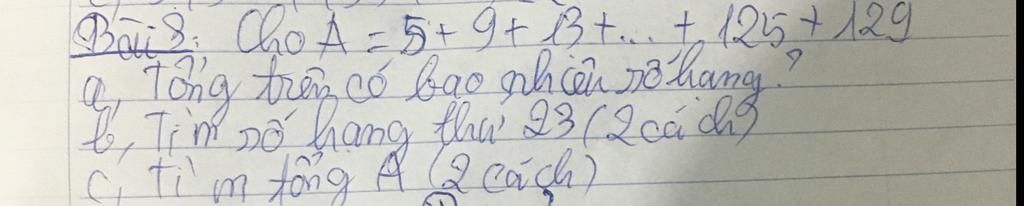 Bài 3: Cho A = 5 + 9 + 13 + ... + 125 + 129
a, Tổng trên có bao nhiêu số hạng?
b, Tìm số hạng thứ 23 (2 cách)
c, Tìm tổng A (2 cách)